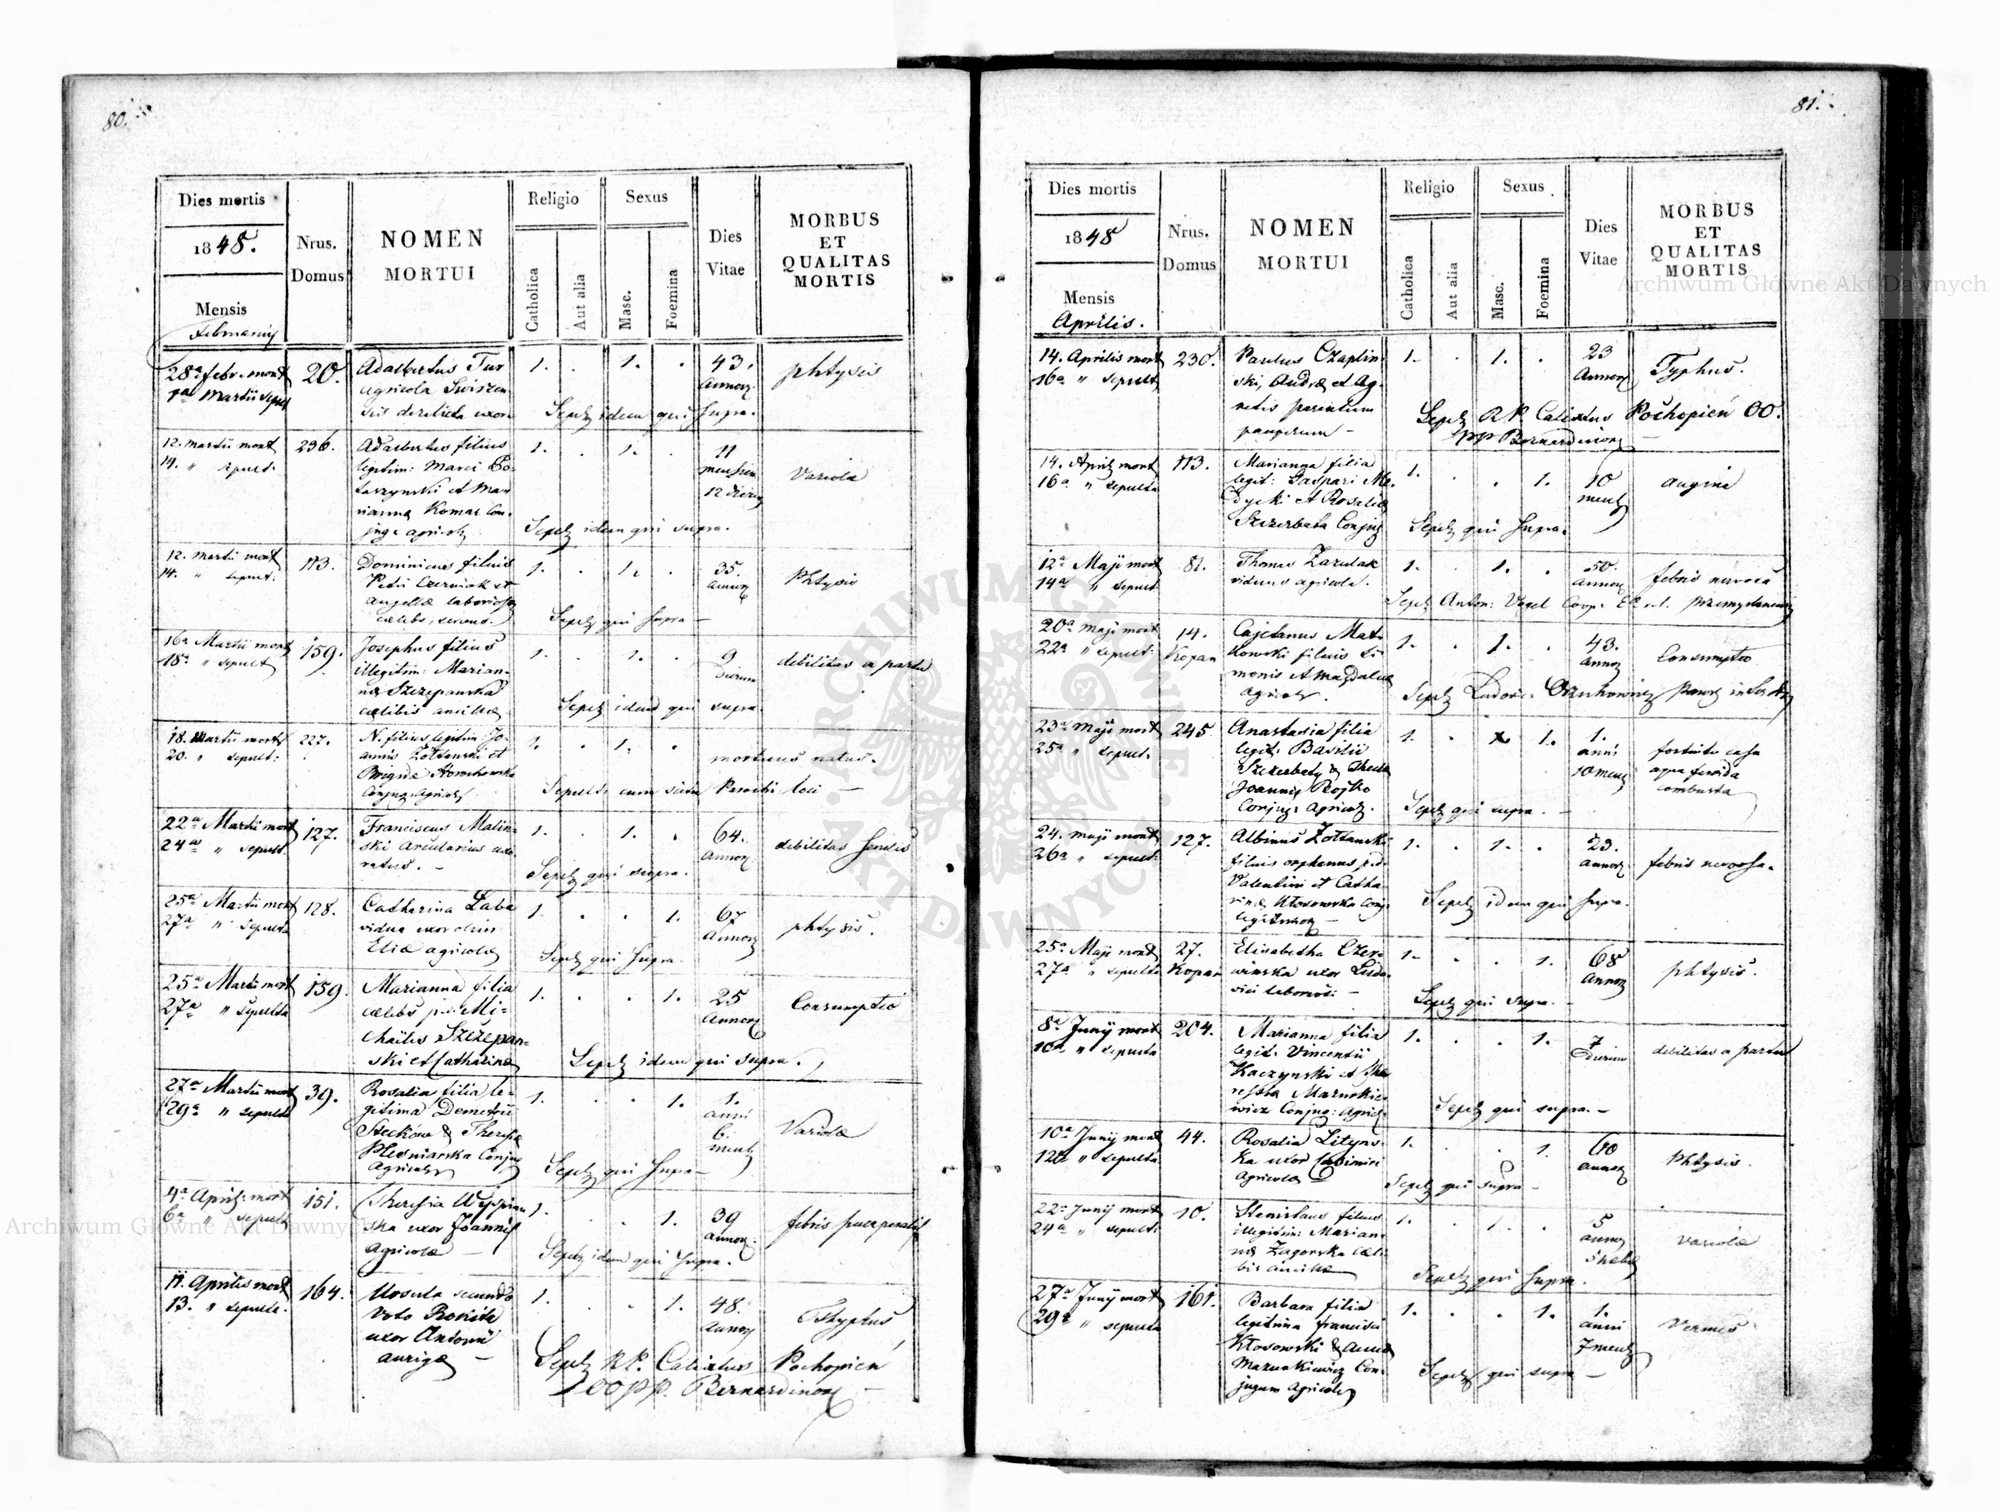 80.
Dies mortis
1848.
Mensis
Februarij
Nrus.
Domus
NOMEN
MORTUI
Religio
Catholica
Aut alia
Sexus
Masc.
Foemina
Dies
Vitae
MORBUS
ET
QUALITAS
MORTIS
28a febr. mort
Martii sepult
20.
Adalbertus Tur
agricola
derelicta uxor
1. . 1. .
43.
Annor
phtysis
Sepel idem qui supra.
12. Martii mort
14. " sepult.
236.
Adalbertus filius
legitim: Marci Bo-
taszynski et Mar
rianna Komar Con-
juge agricol
1. . 1. .
11
mensium
12 dierum
Variola
Sepel idem qui supra.
12. Martii mort
14. " sepult.
113.
Dominicus filius
Petri Czerniak et
Angellae laboriosa
caelebs, servus.
1. . 1. .
35.
annor
Phtysis
Sepel qui supra –
16a Martii mort
18a " sepult
159.
Josephus filius
illegitim: Marian-
nae Szczepanska
caelibis ancillae
1. . 1. .
9
Dierum
debilitas a partu
Sepel idem qui supra.
18. Martii mort
20. " sepult:
227.
N. filius legitim Jo-
annis Zoltanski et
Brigidae Horochowska
Conjug: Agricol
1. . 1. .
mortuus natus.
Sepult: cum scitu Parochi loci –
22a Martii mort
24a " sepult.
127.
Franciscus Malin-
ski arcularius uxo-
ratus. –
1. . 1. .
64.
Annor
debilitas senilis
Sepel qui supra.
25a Martii mort
27a " sepulta
128.
Catharina Laba
vidua uxor olim
Eliae agricolae
1. . . 1.
67
Annor
phtysis.
Sepel qui supra.
25a Martii mort
27a " sepulta
159.
Marianna filia
caelebs p:d: Mi-
chaelis Szczepan-
ski et Catharinae
1. . . 1.
25
Annor
Consumptio
Sepel idem qui supra.
27a Martii mort
29a " sepulta
39.
Rosalia filia le-
gitima Demetrii
Steckow & Theresia
Plesniarska Conjug
Agricol
1. . . 1.
1.
anni
6.
mens
Variolae
Sepel qui supra –
4a April: mort
6a " sepult
151.
Theresia Wyspian
ska uxor Joannis
Agricolae –
1. . . 1.
39
annor.
febris puerperalis
Sepel idem qui supra.
11. Aprilis mort
13. " sepulta.
164.
Ursula secundo
voto Ronicka
uxor Antonii
aurigae –
1. . . 1.
48.
Annor
Thyphus
Sepel R.P. Calixtus Pochopien
OO pp. Bernardinor –
81.
Dies mortis
1848
Mensis
Aprilis.
Nrus.
Domus
NOMEN
MORTUI
Religio
Catholica
Aut alia
Sexus
Masc.
Foemina
Dies
Vitae
MORBUS
ET
QUALITAS
MORTIS
14. Aprilis mort
16a " sepult
230.
Paulus Czaplin-
ski, Andreae et Ag-
netis parentum
pauperum –
1. . 1. .
23
Annor
Typhus.
Sepel R.P. Calixtus Pochopien OO.
pp Bernardinor –
14. April mort
16a " sepulta
113.
Marianna filia
legit: Gaspari Me-
dycki et Rosalia
Szczerbata Conjug
1. . . 1.
10
mens
angina
Sepel qui supra.
12a Maji mort
14a " sepult
81.
Thomas Zarulak
viduus agricola.
1. . 1. .
50.
annor
febris nervosa
Sepel Anton: Vogel Coop:
20a Maji mort
22a " sepult:
14.
Kopan
Cajetanus Mat-
kowski filius Si-
meonis et Magdalenae
Agricol.
1. . 1. .
43.
annor
Consumptio
Sepel Ludovi:
23a Maji mort
25a " sepult.
245
Anastasia filia
legit: Basilii
Szczerbaty & Thecla
Joannis Rojko
Conjug: agricol.
1. . x 1.
1.
anni
10 mens
fortuito casu
aqua fervida
combusta
Sepel qui supra. –
24. Maji mort
26a " sepult:
127.
Albinus Zoltanski
filius orphanus p.d.
Valentini et Catha-
rinae Klosowska Conj.
legitimor –
1. . 1. .
23.
annor
febris nervosa.
Sepel idem qui supra.
25a Maji mort
27a " sepulta
27.
Kopan
Elisabetha Czer-
winska uxor Ludo-
vici laboriosi –
1. . . 1.
68
Annor
phtysis.
Sepel qui supra. –
8a Junij mort
10a " sepulta
204.
Marianna filia
legit: Vincentii
Kaczynski et The-
resia Mazurkie-
wicz Conjug: Agricol
1. . . 1.
7
Dierum
debilitas a partu
Sepel qui supra. –
10a Junij mort
12a " sepulta
44.
Rosalia Lityns-
ka uxor Casimiri
Agricolae –
1. . . 1.
60
annor
Phtysis.
Sepel qui supra –
22. Junij mort
24a " sepult.
10.
Stanislaus filius
illegitim: Marian-
nae Zagorska caeli-
bis ancillae
1. . 1. .
5
annor
variolae
Sepel qui supra.
27a Junij mort
29a " sepulta
161.
Barbara filia
legitima Francisci
Klosowski & Anna
Mazurkiewicz Con-
jugum Agricol
1. . . 1.
1.
anni
7 mens
Vermes
Sepel qui supra –
ARCHIWUM GŁÓWNE
AKT DAWNYCH
Archiwum Główne Akt Dawnych
Archiwum Główne Akt Dawnych